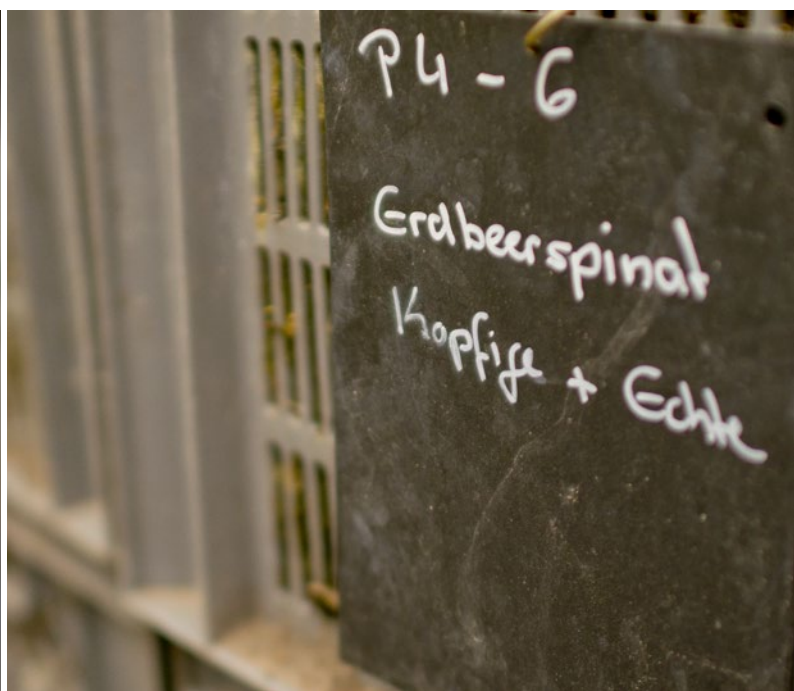 P4 - 6
Erdbeerspinat
Kopfige + Echte